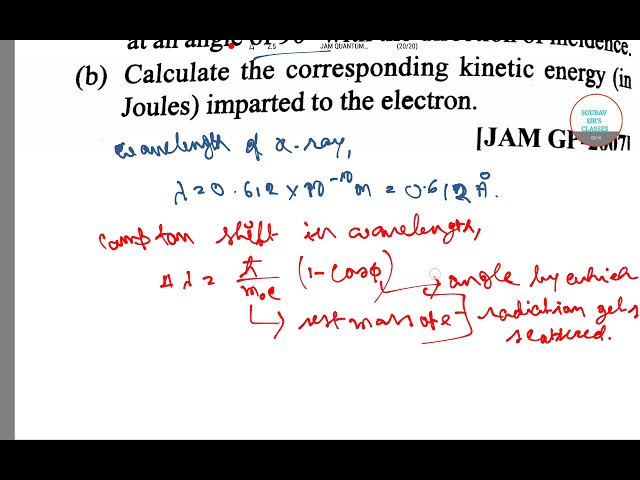 at an angle of 90° with the direction of incidence.
2.5 JAM QUANTUM... (20/20)
(b) Calculate the corresponding kinetic energy (in
Joules) imparted to the electron.
SOURAV
SIR'S
CLASSES
[JAM GP-2007]
wavelength of x-ray,
λ = 0.612 × 10⁻¹⁰ m = 0.612 Å.
Compton shift in wavelength,
Δλ = ℏ/m₀c (1 - cosϕ) → angle by which
radiation gets
scattered.
→ rest mass of e⁻